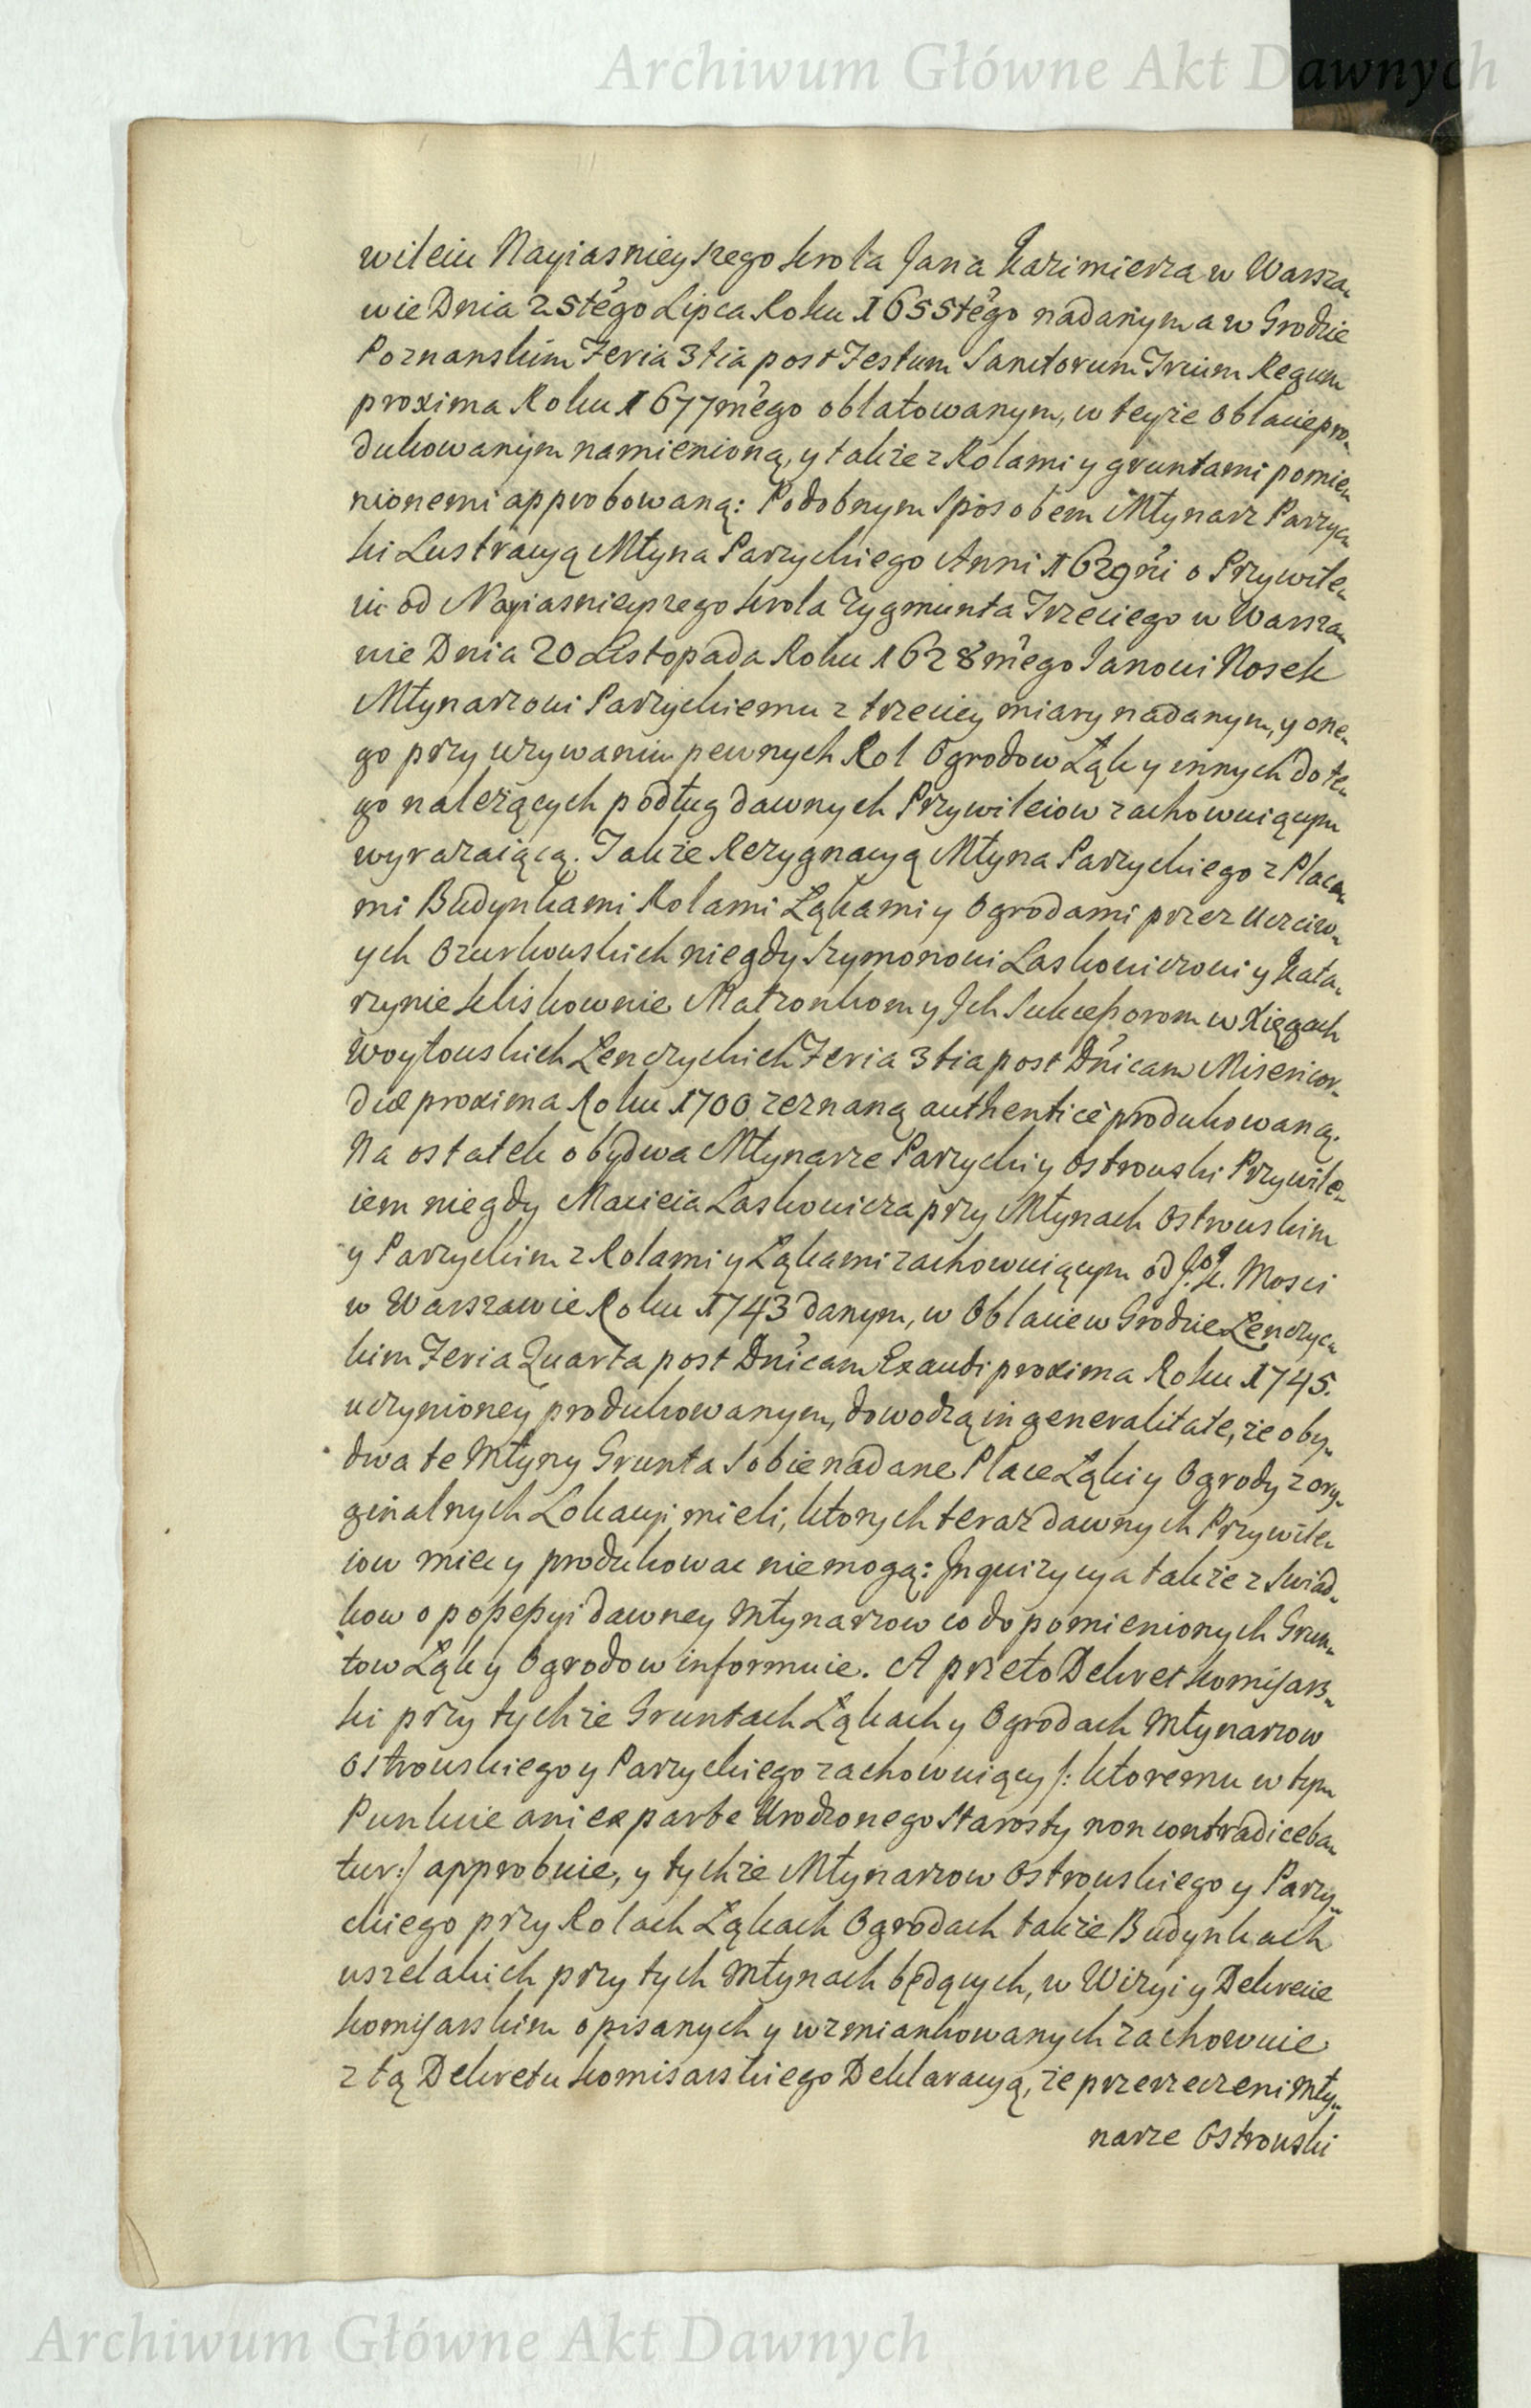 Archiwum Główne Akt Dawnych
wileiu Nayiasnieyszego Krola Jana Kazimierza w Warsza-
wie Dnia 25tego Lipca Roku 1655tego nadanym a w Grodzie
Poznanskim Feria 3tia post Festum Sanctorum Trium Regum
proxima Roku 1677mego oblatowanym, w teyże Oblacie pro-
dukowanym namienioną, y także z Rolami y gruntami pomie-
nionemi approbowaną: Podobnym Sposobem Młynarz Parzyc-
ki Lustracyą Młyna Parzyckiego Anni 1629ni o Przywile-
iu od Nayiasnieyszego Krola Zygmunta Trzeciego w Warsza-
wie Dnia 20 Listopada Roku 1628mego Janowi Nosek
Młynarzowi Parzyckiemu z trzeciey miary nadanym, y one-
go przy używaniu pewnych Rol Ogrodow Łąk y innych do te-
go należących podług dawnych Przywileiow zachowuiącym
wyrażaiącą. Także Rezygnacyą Młyna Parzyckiego z Placa-
mi Budynkami Rolami Łąkami y Ogrodami przez Uczciw-
ych Ozurkowskich niegdy Szymonowi Laskowiczowi y Kata-
rzynie Kliskownie Małżonkom y Ich Sukcessorom w Xięgach
Woytowskich Lenczyckich Feria 3tia post Dnicam Misericor-
diæ proxima Roku 1700 zeznaną authenticè produkowaną.
Na ostatek obydwa Młynarze Parzycki y Ostrowski Przywile-
iem niegdy Macieia Laskowicza przy Młynach Ostrowskim
y Parzyckim z Rolami y Łąkami zachowuiącym od J. K. Mosci
w Warszawie Roku 1743 danym, w Oblacie w Grodzie Lenczyc-
kim Feria Quarta post Dnicam Exaudi proxima Roku 1745.
uczynioney produkowanym, dowodzą in generalitate, że oby-
dwa te Młyny Grunta Sobie nadane Place Łąki y Ogrody z ory-
ginalnych Lokacyi mieli, ktorych teraz dawnych Przywile-
iow miec y produkowac nie mogą: Inquizycya także z Swiad-
kow o possessyi dawney Młynarzow co do pomienionych Grun-
tow Łąk y Ogrodow informuie. A przeto Dekret Komissars-
ki przy tychże Gruntach Łąkach y Ogrodach Młynarzow
Ostrowskiego y Parzyckiego zachowuiący /: ktoremu w tym
Punkcie ani ex parte Urodzonego Starosty non contradiceba-
tur :/ approbuie, y tychże Młynarzow Ostrowskiego y Parzy-
ckiego przy Rolach Łąkach Ogrodach także Budynkach
wszelakich przy tych Młynach będących, w Wizyi y Dekrecie
Komissarskim opisanych y wzmiankowanych zachowuie
z tą Dekretu Komisarskiego Deklaracyą, że przerzeczeni Mły-
narze Ostrowski
Archiwum Główne Akt Dawnych